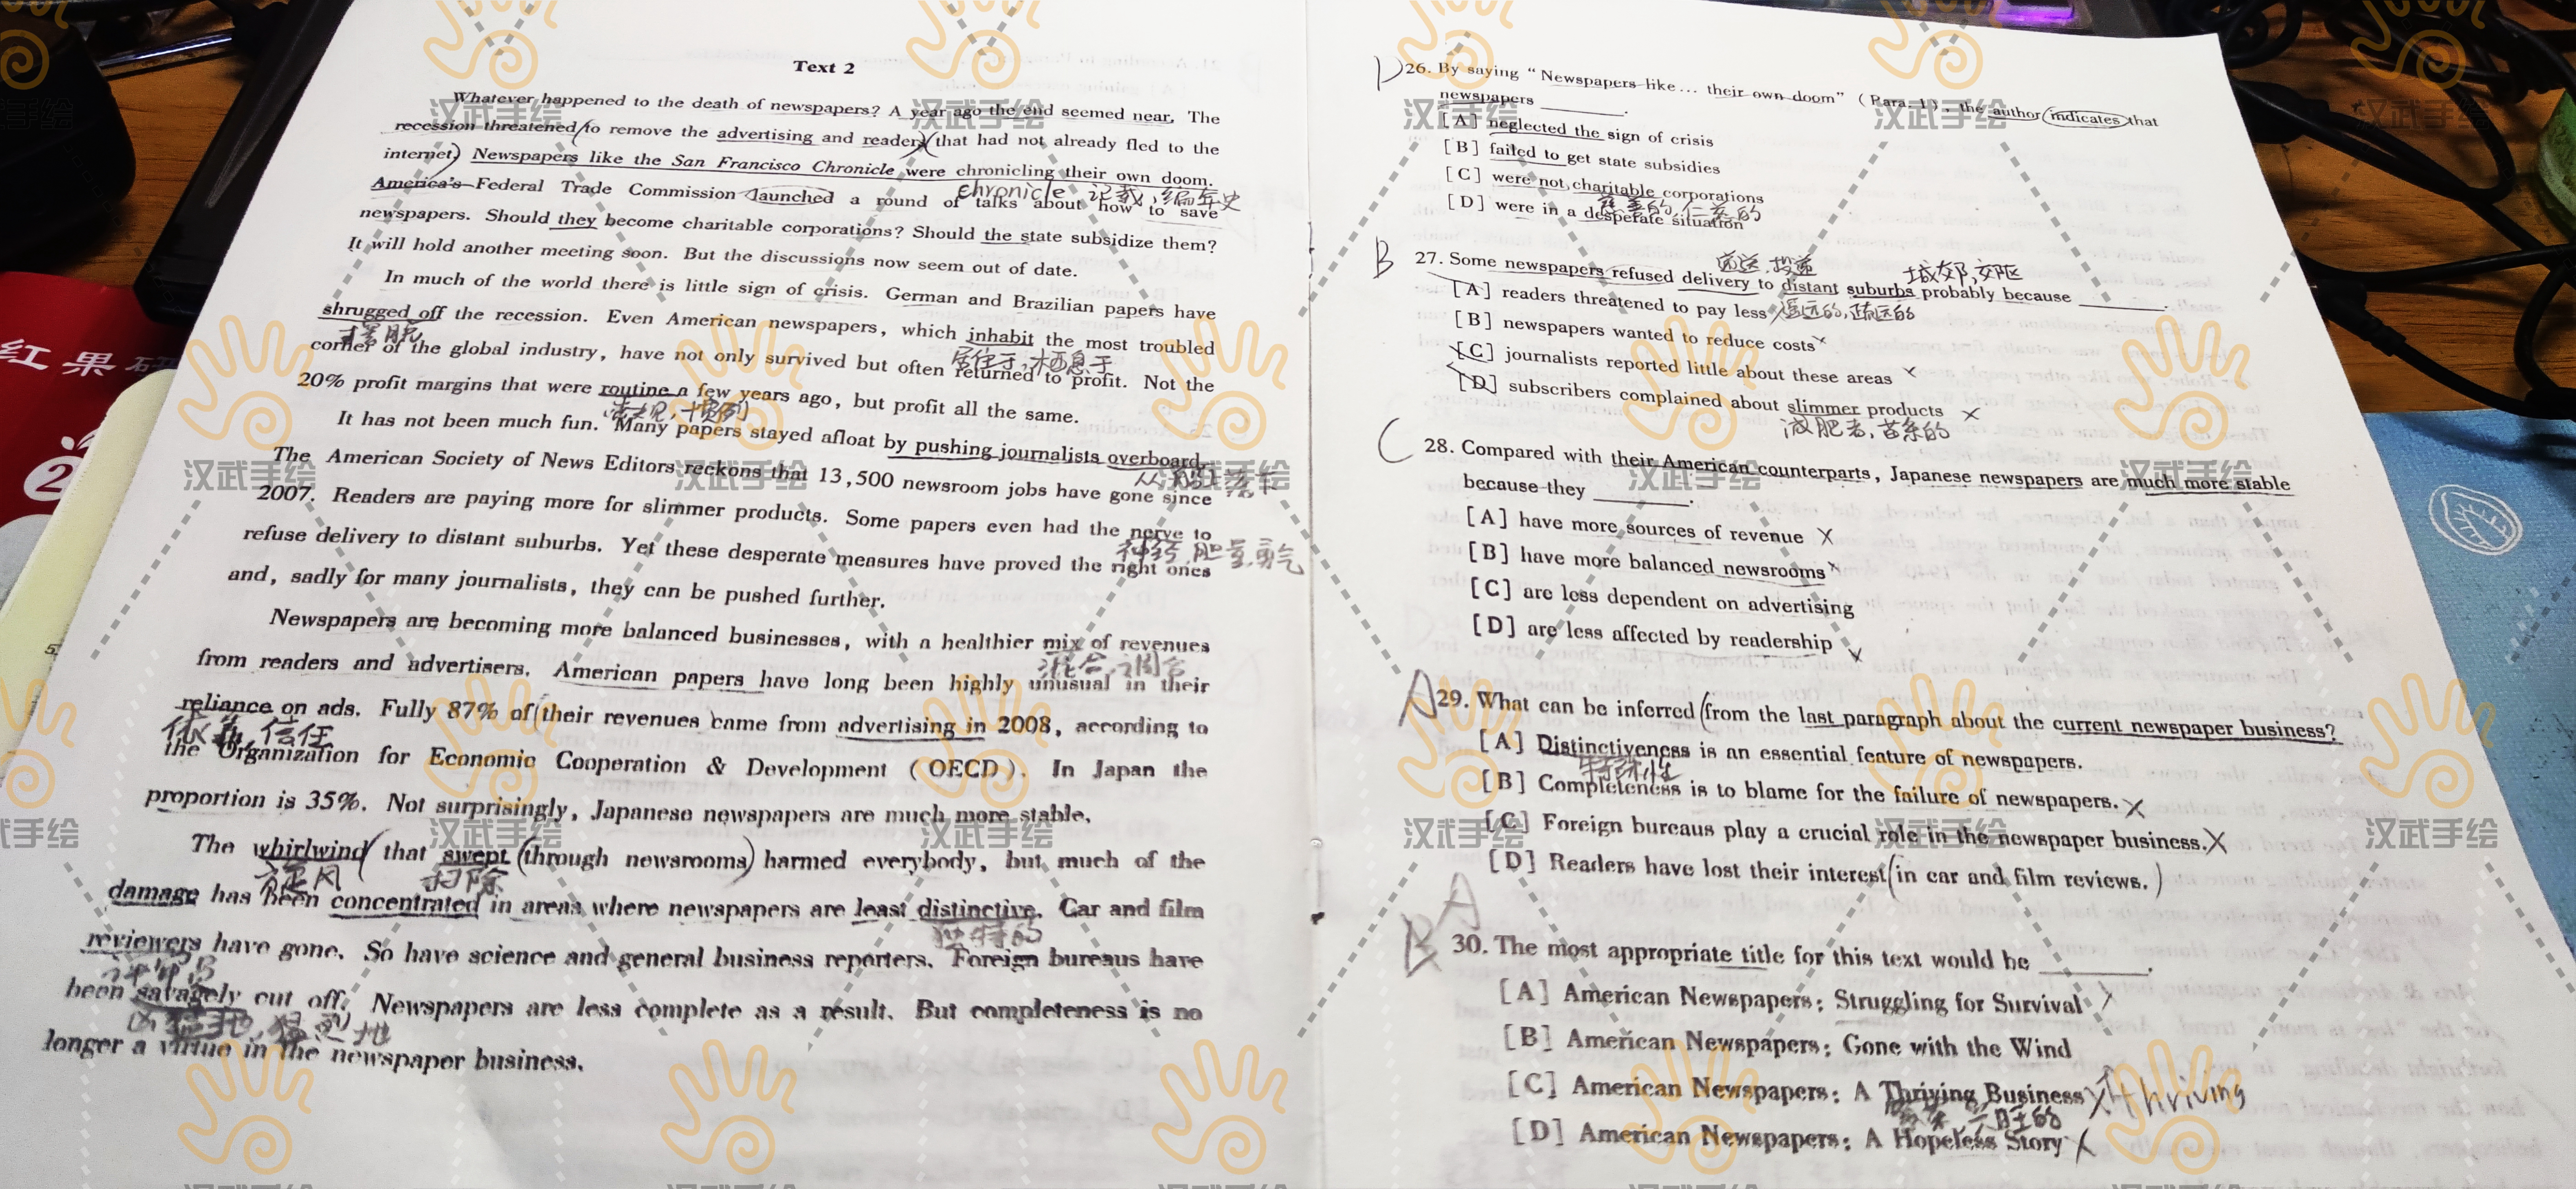 Text 2
Whatever happened to the death of newspapers? A year ago the end seemed near. The
recession threatened to remove the advertising and readers that had not already fled to the
internet. Newspapers like the San Francisco Chronicle were chronicling their own doom.
America's Federal Trade Commission launched a round of talks about how to save
chronicle 记载,编年史
newspapers. Should they become charitable corporations? Should the state subsidize them?
It will hold another meeting soon. But the discussions now seem out of date.
In much of the world there is little sign of crisis. German and Brazilian papers have
shrugged off the recession. Even American newspapers, which inhabit the most troubled
摆脱
corner of the global industry, have not only survived but often returned to profit. Not the
居住于,栖息于
20% profit margins that were routine a few years ago, but profit all the same.
常规,惯例
It has not been much fun. Many papers stayed afloat by pushing journalists overboard.
The American Society of News Editors reckons that 13,500 newsroom jobs have gone since
2007. Readers are paying more for slimmer products. Some papers even had the nerve to
神经,胆量,勇气
refuse delivery to distant suburbs. Yet these desperate measures have proved the right ones
and, sadly for many journalists, they can be pushed further.
Newspapers are becoming more balanced businesses, with a healthier mix of revenues
混合,调合
from readers and advertisers. American papers have long been highly unusual in their
reliance on ads. Fully 87% of their revenues came from advertising in 2008, according to
依靠,信任
the Organization for Economic Cooperation & Development (OECD). In Japan the
proportion is 35%. Not surprisingly, Japanese newspapers are much more stable.
The whirlwind that swept through newsrooms harmed everybody, but much of the
旋风
扫除
damage has been concentrated in areas where newspapers are least distinctive. Car and film
独特的
reviewers have gone. So have science and general business reporters. Foreign bureaus have
评论员
been savagely cut off. Newspapers are less complete as a result. But completeness is no
凶猛地,猛烈地
longer a virtue in the newspaper business.
D
26. By saying “Newspapers like... their own doom” (Para. 1), the author indicates that
newspapers ______.
[A] neglected the sign of crisis
[B] failed to get state subsidies
[C] were not charitable corporations
慈善的,仁慈的
[D] were in a desperate situation
B
27. Some newspapers refused delivery to distant suburbs probably because ______.
城郊,郊区
[A] readers threatened to pay less
遥远的,疏远的
[B] newspapers wanted to reduce costs
[C] journalists reported little about these areas
[D] subscribers complained about slimmer products
减肥者,苗条的
C
28. Compared with their American counterparts, Japanese newspapers are much more stable
because they ______.
[A] have more sources of revenue
[B] have more balanced newsrooms
[C] are less dependent on advertising
[D] are less affected by readership
A
29. What can be inferred from the last paragraph about the current newspaper business?
[A] Distinctiveness is an essential feature of newspapers.
特殊性
[B] Completeness is to blame for the failure of newspapers.
[C] Foreign bureaus play a crucial role in the newspaper business.
[D] Readers have lost their interest in car and film reviews.
A
B
30. The most appropriate title for this text would be ______.
[A] American Newspapers: Struggling for Survival
[B] American Newspapers: Gone with the Wind
[C] American Newspapers: A Thriving Business
thriving
[D] American Newspapers: A Hopeless Story
红果研
2
汉武手绘